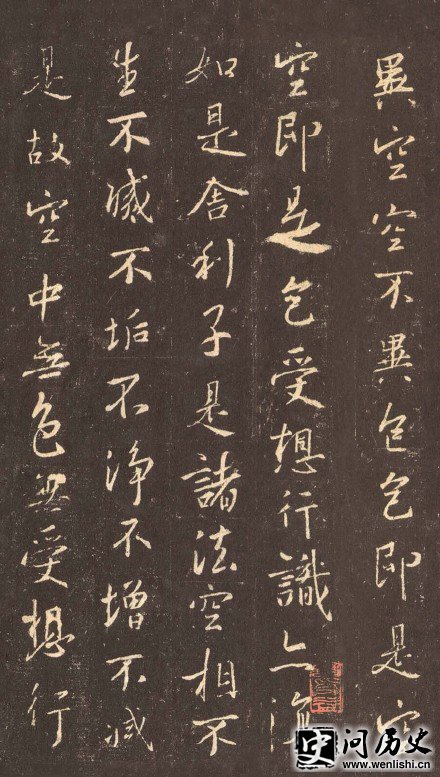 異空空不異色色即是空
空即是色受想行識亦復
如是舍利子是諸法空相不
生不滅不垢不淨不增不減
是故空中無色無受想行
问历史
www.wenlishi.cn